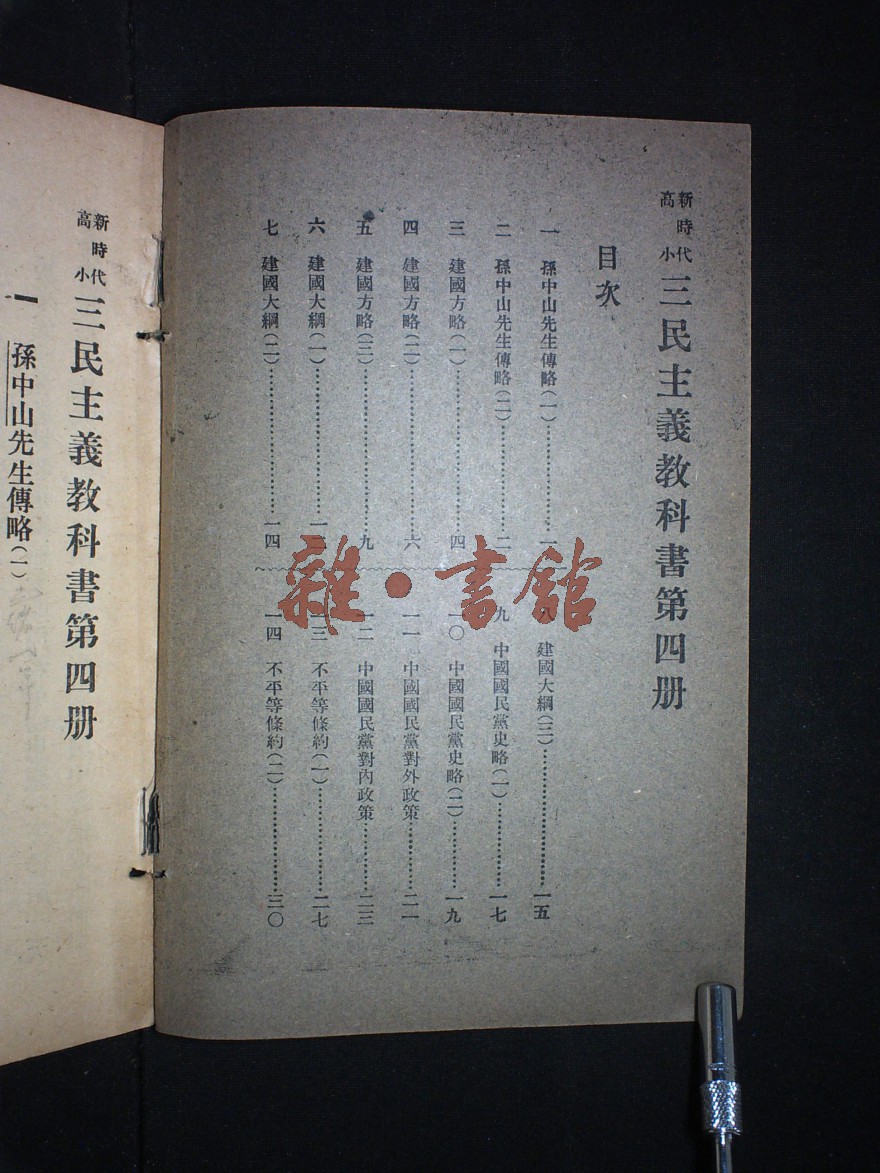 新時代高小三民主義教科書第四册
目次
一 孫中山先生傳略(一)……一
二 孫中山先生傳略(二)……二
三 建國方略(一)……四
四 建國方略(二)……六
五 建國方略(三)……九
六 建國大綱(一)……一
七 建國大綱(二)……一四
八 建國大綱(三)……一五
九 中國國民黨史略(一)……一七
一〇 中國國民黨史略(二)……一九
一一 中國國民黨對外政策……二一
一二 中國國民黨對內政策……二三
一三 不平等條約(一)……二七
一四 不平等條約(二)……三〇
雜·書館
新時代高小三民主義教科書第四册
一 孫中山先生傳略(一)